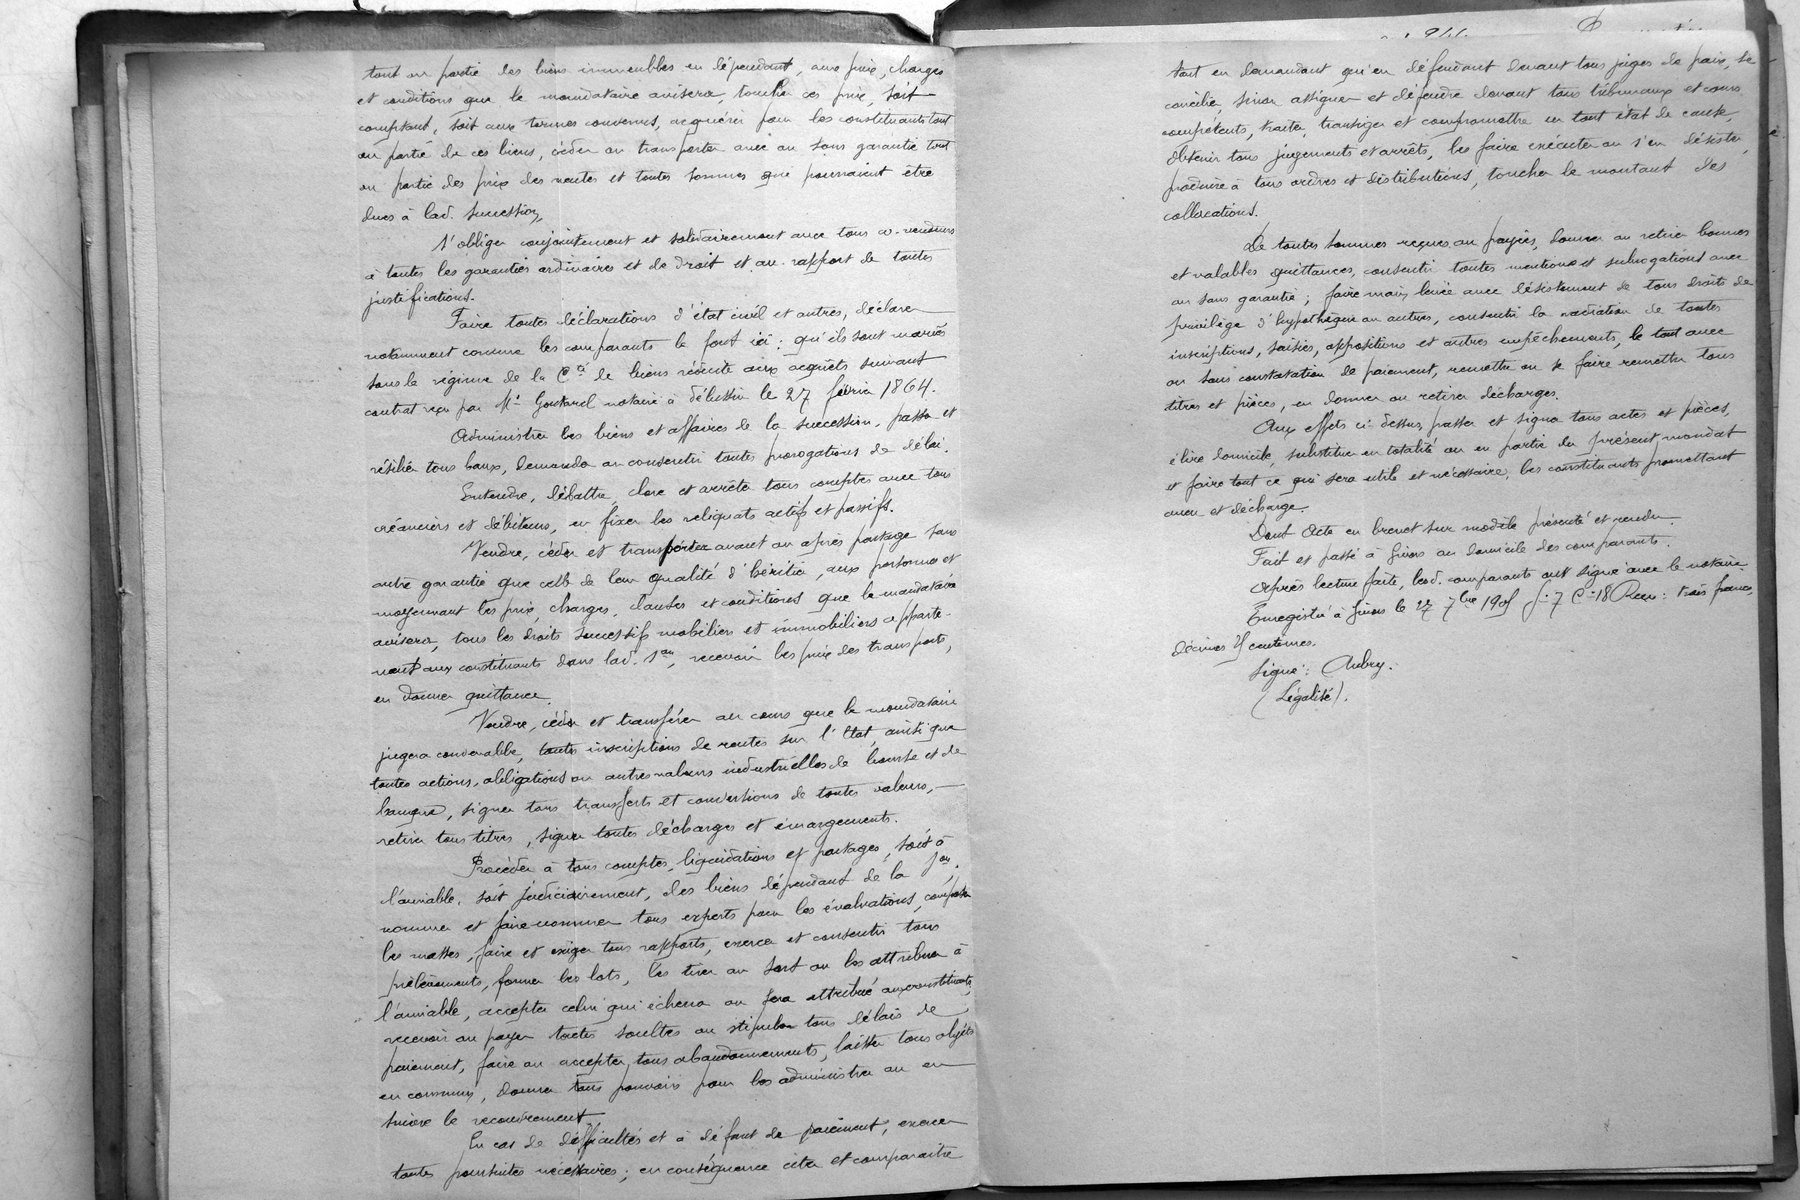 tout ou partie des biens immeubles en dépendant, aux prix, charges
et conditions que le mandataire avisera, toucher ces prix, soit
comptant, soit aux termes convenus, acquérir pour les constituants tout
ou partie de ces biens, céder ou transporter avec ou sans garantie tout
ou partie des prix des ventes et toutes sommes que pourraient être
dues à lad. succession,
S'obliger conjointement et solidairement avec tous co-vendeurs
à toutes les garanties ordinaires et de droit et au rapport de toutes
justifications.
Faire toutes déclarations d'état civil et autres, déclarer
notamment comme les comparants le font ici : qu'ils sont mariés
sous le régime de la Cté de biens réduite aux acquêts suivant
contrat reçu par Me notaire à le 27 février 1864.
Administrer les biens et affaires de la succession, passer et
résilier tous baux, demander ou consentir toutes prorogations de délai.
Entendre, débattre, clore et arrêter tous comptes avec tous
créanciers et débiteurs, en fixer les reliquats actifs et passifs.
Vendre, céder et transporter avant ou après partage sans
autre garantie que celle de leur qualité d'héritier, aux personnes et
moyennant les prix, charges, clauses et conditions que le mandataire
avisera, tous les droits successifs mobiliers et immobiliers apparte-
nant aux constituants dans lad. son, recevoir les prix des transports,
en donner quittance.
Vendre, céder et transférer au cours que le mandataire
jugera convenable, toutes inscriptions de rentes sur l'Etat, ainsi que
toutes actions, obligations ou autres valeurs industrielles de bourse et de
banque, signer tous transferts et conversions de toutes valeurs,
retirer tous titres, signer toutes décharges et émargements.
Procéder à tous comptes, liquidations et partages, soit à
l'amiable, soit judiciairement, des biens dépendant de la son,
nommer et faire nommer tous experts pour les évaluations, composer
les masses, faire et exiger tous rapports, exercer et consentir tous
prélèvements, former les lots, les tirer au sort ou les attribuer à
l'amiable, accepter celui qui écherra ou sera attribué aux constituants,
recevoir ou payer toutes soultes ou stipuler tous délais de
paiement, faire ou accepter tous abandonnements, laisser tous objets
en commun, donner tous pouvoirs pour les administrer ou en
suivre le recouvrement.
En cas de difficultés et à défaut de paiement, exercer
toutes poursuites nécessaires ; en conséquence citer et comparaître
tant en demandant qu'en défendant devant tous juges de paix, se
concilier, sinon assigner et défendre devant tous tribunaux et cours
compétents, traiter, transiger et compromettre en tout état de cause,
obtenir tous jugements et arrêts, les faire exécuter ou s'en désister,
produire à tous ordres et distributions, toucher le montant des
collocations.
De toutes sommes reçues ou payées, donner ou retirer bonnes
et valables quittances, consentir toutes mentions et subrogations avec
ou sans garantie ; faire main levée avec désistement de tous droits de
privilège d'hypothèque ou autres, consentir la radiation de toutes
inscriptions, saisies, oppositions et autres empêchements, le tout avec
ou sans constatation de paiement, remettre ou se faire remettre tous
titres et pièces, en donner ou retirer décharges.
Aux effets ci dessus, passer et signer tous actes et pièces,
élire domicile, substituer en totalité ou en partie du présent mandat
et faire tout ce qui sera utile et nécessaire, les constituants promettant
aveu et décharge.
Dont Acte en brevet sur modèle présenté et rendu.
Fait et passé à Givors au domicile des comparants.
Après lecture faite, lesd. comparants ont signé avec le notaire.
Enregistré à Givors le 27 7bre 190 fo 7 Co 18 Reçu : trois francs,
décimes 75 centimes.
Signé : Aubry.
(Légalisé).